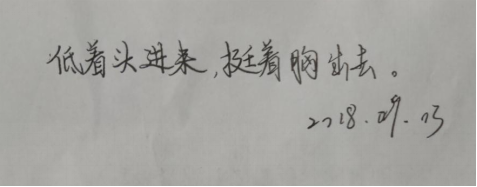 低着头进来,挺着胸出去。
2018.09.03